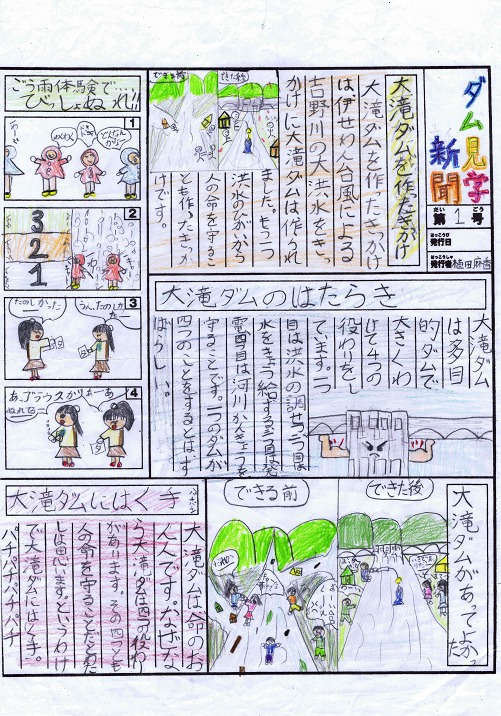 ダム見学新聞
第1号
だい
ごう
はっこうび
発行日
はっこうしゃ
発行者
大滝ダムを作ったきっかけ
大滝ダムを作ったきっかけ
は、伊せわん台風による
吉野川の大洪水をきっ
かけに大滝ダムは作られ
ました。もう一つ
洪水のひがいから
人の命を守るこ
とも作ったきっか
けです。
できる前
できた後
ごう雨体験で…
びっしょぬれ!!
1
2
3
2
1
3
たのしかった
うん、たのしかった
4
大滝ダムのはたらき
大滝ダム
は多目
的ダムで
大きくわ
けて4つの
役わりをし
ています。一つ
目は洪水の調せつ二つ目は
水をきょう給する三つ目は発
電四つ目は河川かんきょうを
守ることです。一つのダムが
四つのことをするとはす
ばらしい。
大滝ダムがあってよかった
できる前
できた後
大滝ダムにはく手
パチパチ
大滝ダムは命のお
んんです。なぜな
ら大滝ダムは四つの役わり
があります。その四つとも
人の命を守ることだとわた
しは思います。というわけ
で大滝ダムにはく手。
パチパチパチパチ